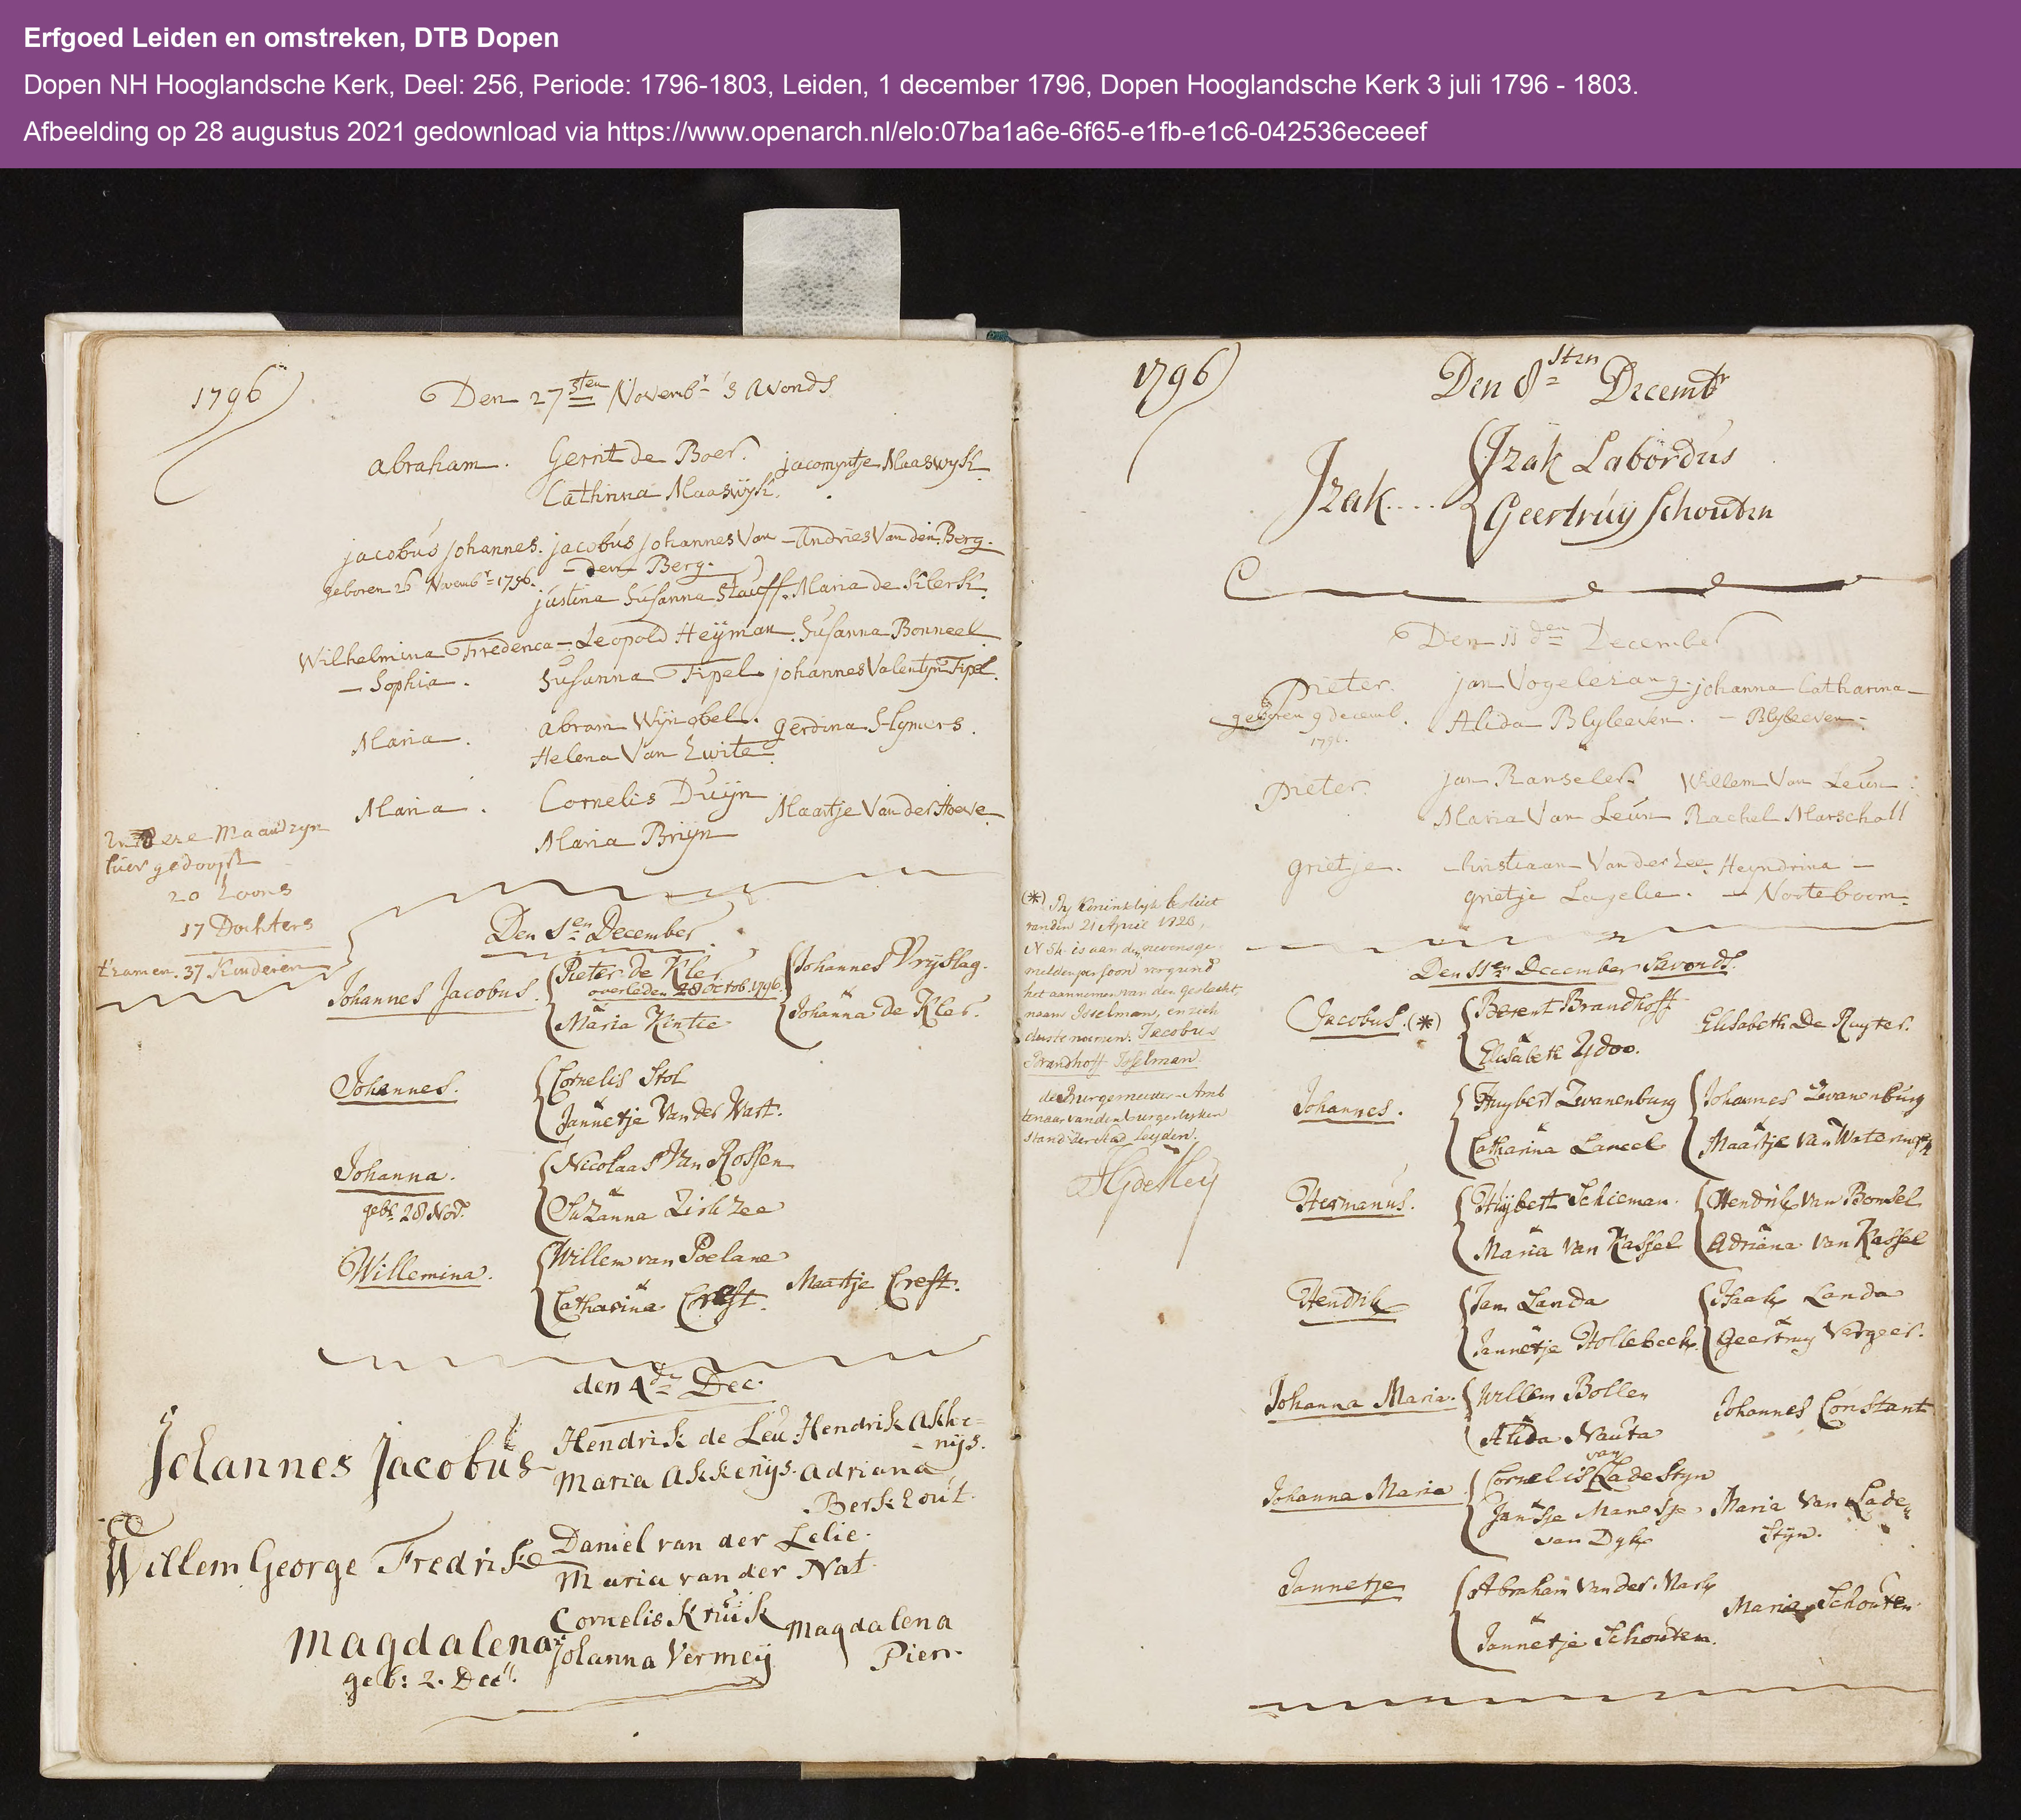 Erfgoed Leiden en omstreken, DTB Dopen
Dopen NH Hooglandsche Kerk, Deel: 256, Periode: 1796-1803, Leiden, 1 december 1796, Dopen Hooglandsche Kerk 3 juli 1796 - 1803.
Afbeelding op 28 augustus 2021 gedownload via https://www.openarch.nl/elo:07ba1a6e-6f65-e1fb-e1c6-042536eceeef
1796
Den 27sten Novembr 's Avonds
abraham. Gerrit de Boer. jacomyntje Maaswyk
Cathrina Maaswyk.
jacobus johannes. jacobus johannes Van - Andries Van den Berg.
- den Berg.
geboren 26 Novembr 1796. justina Susanna Stauff. Maria de Klerk.
Wilhelmina Frederica - Leopold Heyman. Susanna Bonneel
- Sophia. Susanna Tipel johannes Valentyn Tipel.
Maria. abram Wynobel. gerdina Slymers.
Helena Van Zwite
Maria. Cornelis Duyn Maartje Van der Hoeve
Maria Bryn
In Deze Maand zyn
hier gedoopt
20 Zoons
17 Dochters
t'zamen. 37 Kinderen
Den 1en December
Johannes Jacobus. Pieter de Kler Johannes Vryslag.
overleden 28 Octob. 1796.
Maria Kintie Johanna de Kler.
Johannes. Cornelis Stol
Jannetje Van der Vart.
Johanna. Nicolaas Van Rossen
geb: 28 Nov. Suzanna Zirkzee
Willemina. Willem van Poelane
Catharina Creft. Maartje Creft.
den 4de Dec.
Johannes Jacobus Hendrik de Leu Hendrik Akke=
- nijs.
Maria Akkenijs. Adriana
Berkhout.
Willem George Fredrik Daniel van der Lelie.
Maria van der Nat.
Magdalena Cornelis Kruik Magdalena
geb: 2. Dec. Johanna Vermeij Pien.
1796
Den 8sten Decembr
Izak.... Izak Labordus
Geertruij Schouten
Den 11den December
Pieter. jan Vogelezang. johanna Catharina -
geboren 9 decemb. Alida Blyleeven. - Blyleeven -
1796.
pieter. jan Ranseler. Willem Van Leun.
Maria Van Leun Rachel Marschall
grietje. christiaan Van der Zee. Heyndrina -
grietje Lagelie. - Norteboom
Den 11en December Savonds.
Jacobus. (*) Berent Brandhoff Elisabeth De Ruyter.
Elisabeth Ydoo.
(*) By Koninklyk besluit
van den 21 April 1828,
N 54 is aan den nevensge-
melden persoon vergund
het aannemen van den geslacht,
naam Isselman, en zich
dus te noemen: Jacobus
Brandhoff Isselman.
de Burgemeester - Amb
tenaar van den burgerlyken
stand der stad Leyden.
Johannes. Huybert Zwanenburg Johannes Zwanenburg
Catharina Lancel Maartje van Wateringen
Hermanus. Huybert Schieman. Hendrik van Bomsel
Maria van Kassel Adriana van Kassel
Hendrik Jan Landa Isaak Landa
Jannetje Hollebeek Geertruy Vergeer.
Johanna Maria. Willem Bollen Johannes Constant
Alida Nauta
Johanna Maria. Cornelis van Ladestyn
Jantje Manesje Maria van Lade=
van Dyk styn.
Jannetje Abraham van der Mark Maria Schouten
Jannetje Schouten.